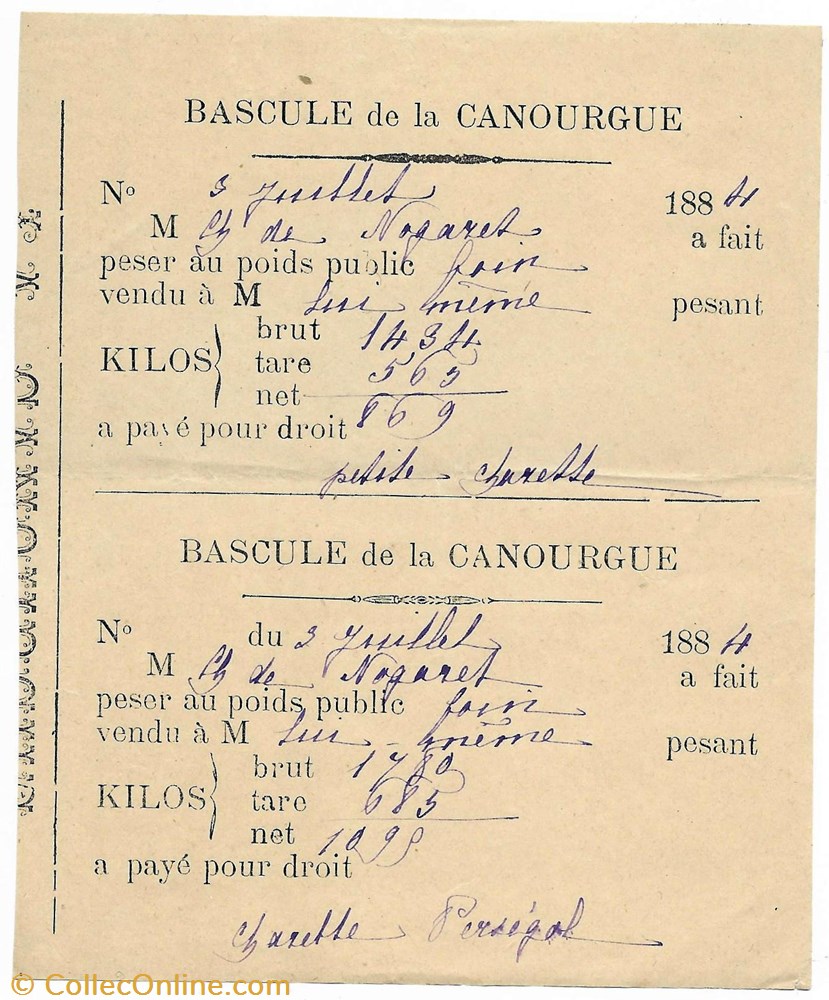 BASCULE de la CANOURGUE
No 3 Juillet 1884
M Ch de Nogaret a fait
peser au poids public foin
vendu à M lui même pesant
KILOS
brut 1434
tare 565
net 869
a payé pour droit
petite charette
BASCULE de la CANOURGUE
No du 3 Juillet 1884
M Ch de Nogaret a fait
peser au poids public foin
vendu à M lui-même pesant
KILOS
brut 1780
tare 685
net 1095
a payé pour droit
Charette Perségol
© CollecOnline.com